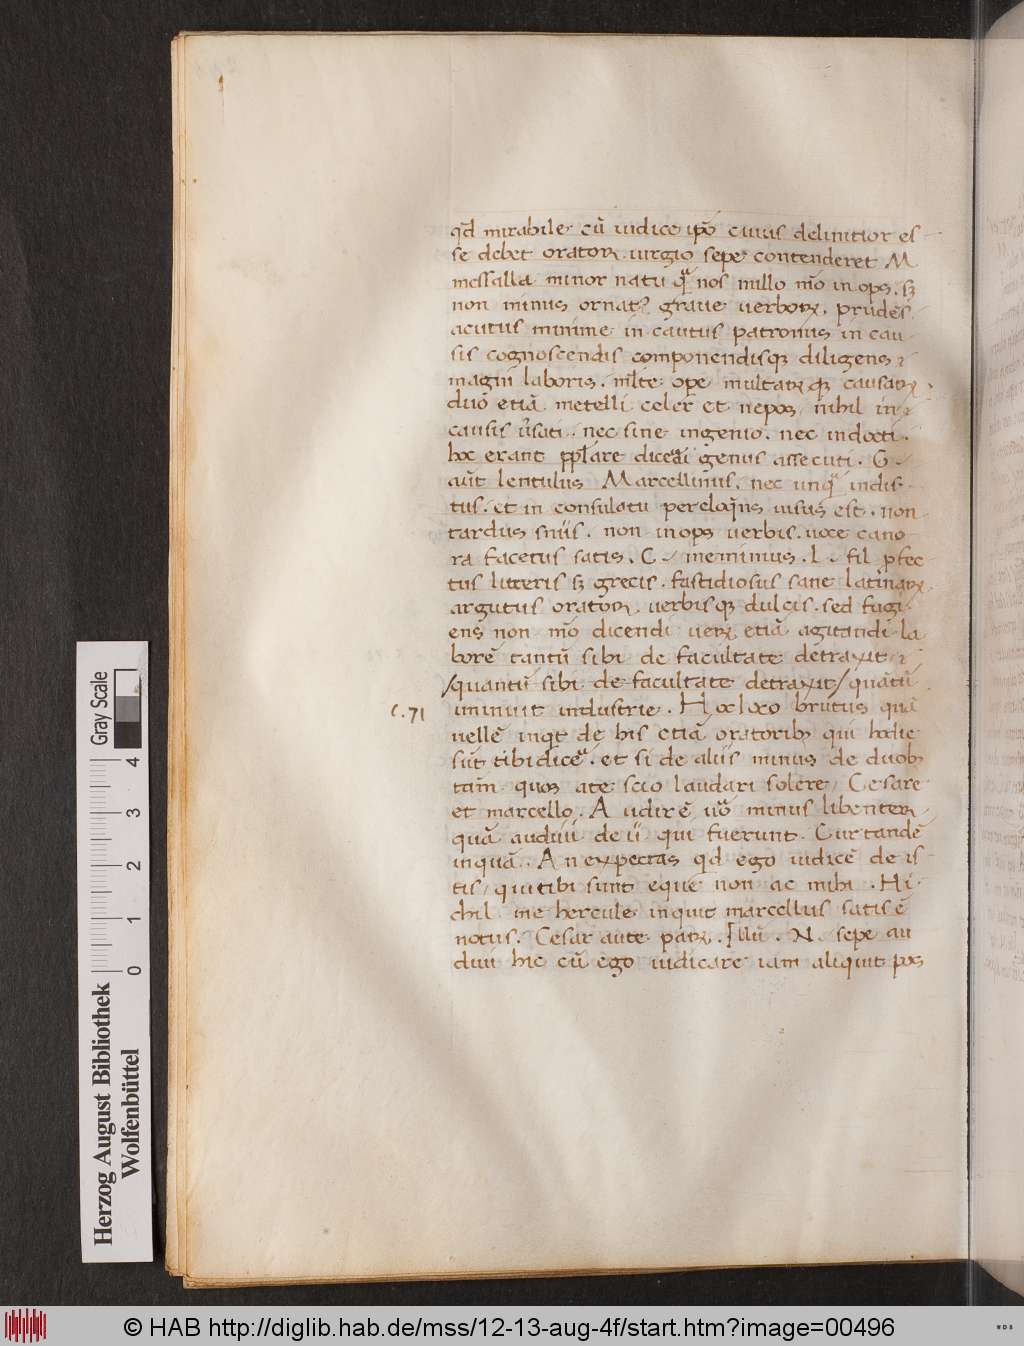 qd̄ mirabile. cū iudice ip̄o cuius delinitior es
se debet orator. iurgio sepe contenderet M
messalla minor natu q̄ nos nullo mō inops. sꝫ
non minus ornatꝰ graue uerboꝝ. prudēs
acutus minime in cautus patronus in cau
sis cognoscendis componendisqꝫ diligens
magni laboris. ml̄te ope multarꝝ qꝫ causarꝝ
duo etiā metelli celer et nepos nihil in
causis ūsati. nec sine ingenio. nec indocti.
hoc erant pp̄lare dicēdi genus assecuti. G
aūt lentulus Marcellinus. nec unq̄ indis
tus. et in consulatu pereloq̄ns uisus est. non
tardus sn̄iis. non inops uerbis. uoce cano
ra facetus satis. C memimius. L fil pfec
tus litteris sꝫ grecis. fastidiosus sane latinarꝝ
argutus orator. uerbisqꝫ dulcis. sed fugi
ens non mō dicendi uerꝝ etiā agitandi la
borē tantū sibi de facultate detraxit
/quantū sibi de facultate detraxit/ quātū
C. 71
iminuit industrie. Hoc loco brutus quā
uellē inqt de his etiā oratoribꝫ qui hodie
sūt tibi dicē. et si de aliis minus de duobꝫ
tam̄ quos a te scio laudari solere Cesare
et marcello. Audirē uō minus libenter
quā audiui de ii qui fuerunt. Cur tandē
inquā. An expectas qd̄ ego iudicē de is
tis qui tibi sunt eque non ac mihi. Hi
chil me hercule inquit marcellus satis ē
notus. Cesar aute parꝝ. Illū. N. sepe au
diui hic cū ego iudicare iam aliquit pos
Herzog August Bibliothek
Wolfenbüttel
0 1 2 3 4
Gray Scale
© HAB http://diglib.hab.de/mss/12-13-aug-4f/start.htm?image=00496